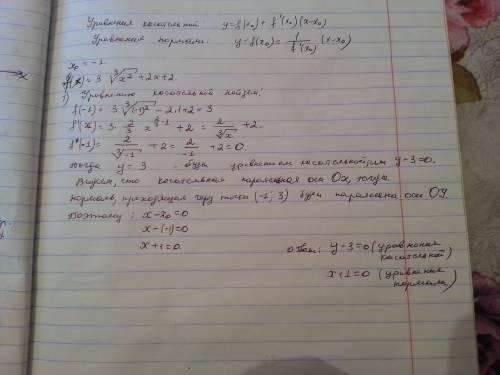 Уравнения касательной y=f(x₀)+f'(x₀)(x-x₀)
Уравнения нормали: y-f(x₀)=1/f'(x₀) (x-x₀)
x₀=-1.
f(x)=3∛x²+2x+2.
1) Уравнению касательной найдем:
f(-1)=3∛(-1)²-2·1+2=3
f'(x)=3·2/3 x^(2/3-1)+2=2/∛x+2.
f'(-1)=2/∛-1+2=2/-1+2=0.
Тогда y=3 - будет уравнением касательной или y-3=0.
что касательная параллельна оси Ox, тогда
нормаль, проходящая через точки (-1; 3) будет параллельна оси OY.
Поэтому: x-x₀=0
x-(-1)=0
x+1=0.
Ответ: y-3=0 (уравнения касательной)
x+1=0 (уравнения нормали)